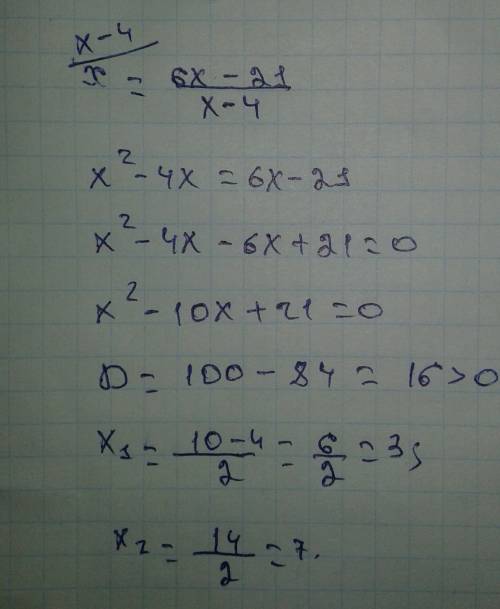 x-4/
x = 6x - 21 / x-4
x² - 4x = 6x - 21
x² - 4x - 6x + 21 = 0
x² - 10x + 21 = 0
D = 100 - 84 = 16 > 0
x₁ = 10-4 / 2 = 6/2 = 3;
x₂ = 14/2 = 7.